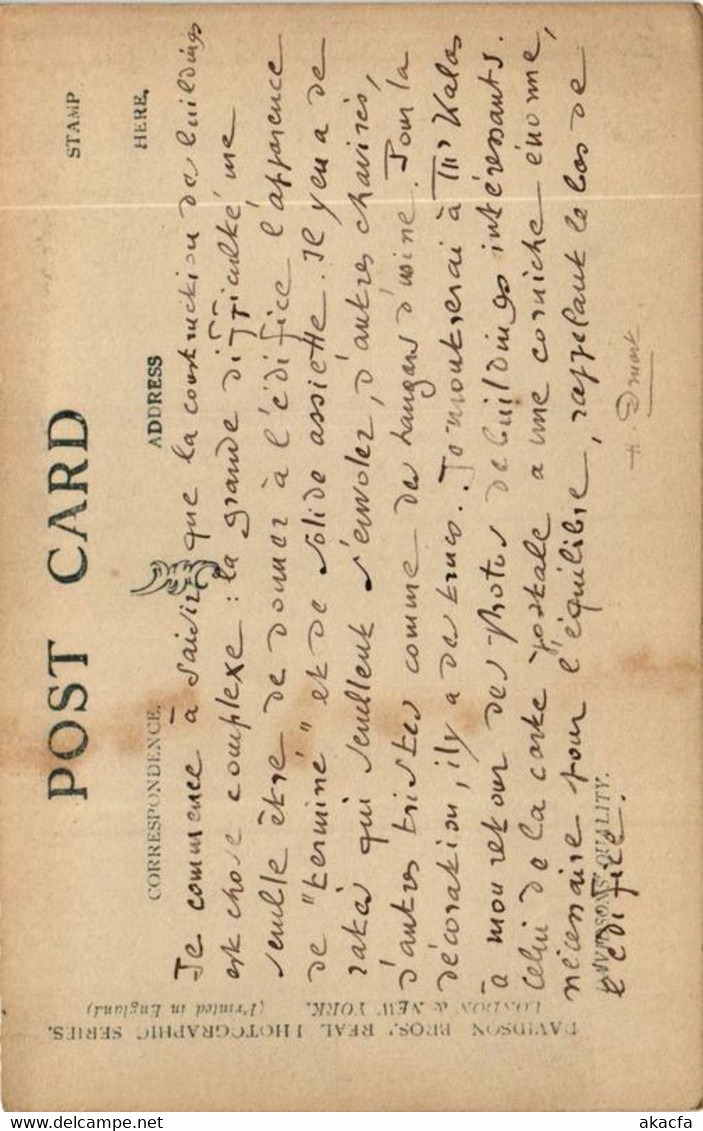 POST CARD
STAMP
HERE,
CORRESPONDENCE.
ADDRESS
Je commence à saisir que la construction de buildings
est chose complexe : la grande difficulté me
semble être de donner à l'édifice l'apparence
de "terminé" et de solide assiette. Il y en a de
ratés qui semblent s'envoler, d'autres chavirés,
d'autres tristes comme des hangars d'usine. Pour la
décoration, il y a des trucs. Je montrerai à Mr Kalas
à mon retour des photos de buildings intéressants.
Celui de la carte postale a une corniche énorme,
nécessaire pour l'équilibre, rappelant le bas de
l'édifice.
DAVIDSONS' QUALITY.
DAVIDSON BROS' REAL PHOTOGRAPHIC SERIES.
LONDON & NEW YORK. (Printed in England)
www.delcampe.net
akacfa